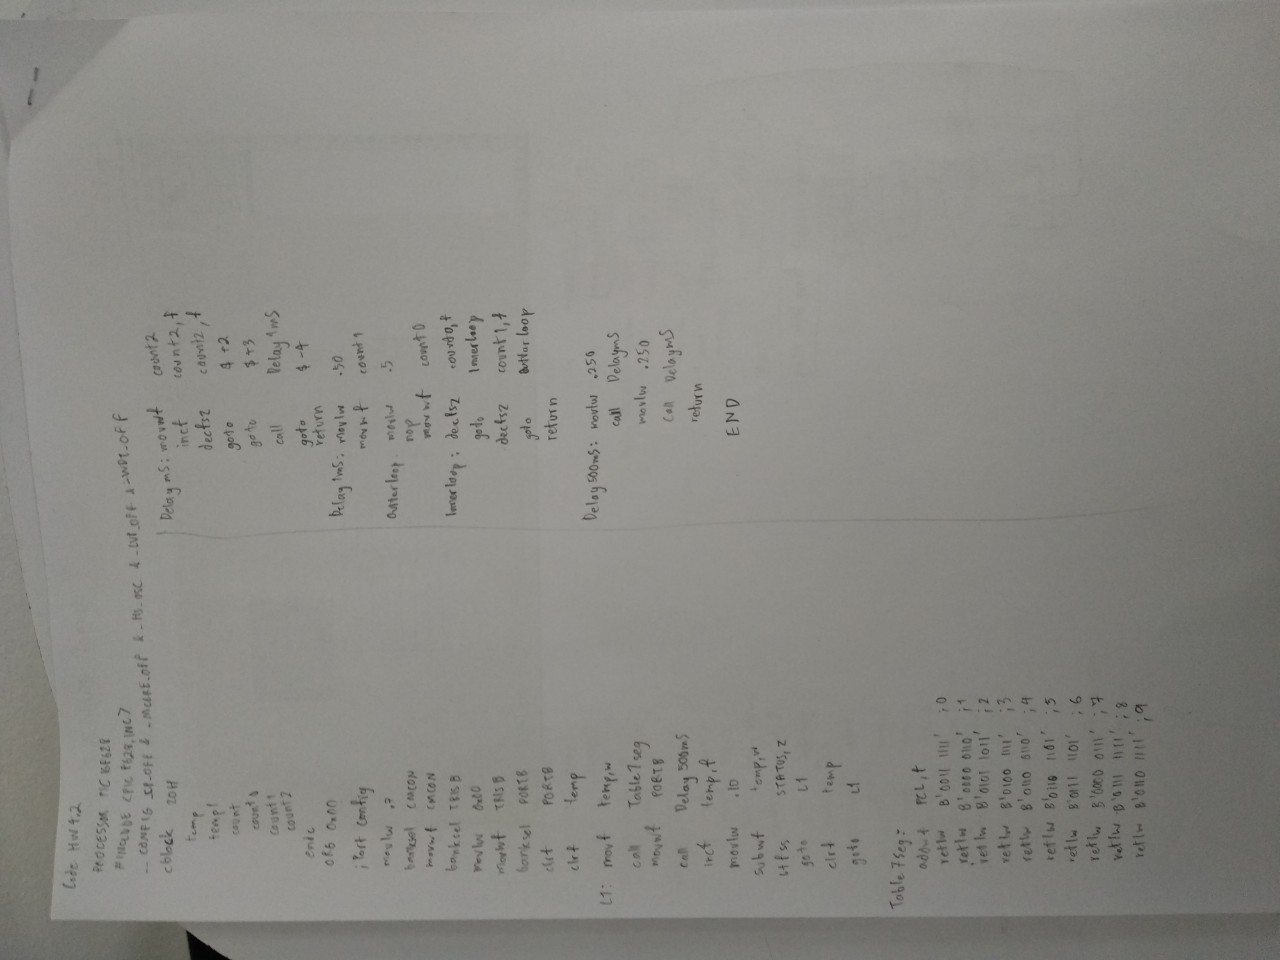 Code HW 4.2
PROCESSOR PIC 16F628
#INCLUDE <PIC F628.INC>
-- CONFIG _CP_OFF & _MCLRE_OFF & _HS_OSC & _LVP_OFF & _WDT_OFF
cblock 20H
temp
temp1
count
count0
count1
count2
endc
ORG 0x00
; Port Config
movlw .7
banksel CMCON
movwf CMCON
banksel TRISB
movlw 0x00
movwf TRISB
banksel PORTB
clrf PORTB
clrf temp
L1: movf temp,w
call Table7seg
movwf PORTB
call Delay500mS
incf temp,f
movlw .10
subwf temp,w
btfss STATUS,Z
goto L1
clrf temp
goto L1
Table7seg:
addwf PCL,f
retlw B'0011 1111' ;0
retlw B'0000 0110' ;1
retlw B'0101 1011' ;2
retlw B'0100 1111' ;3
retlw B'0110 0110' ;4
retlw B'0110 1101' ;5
retlw B'0111 1101' ;6
retlw B'0000 0111' ;7
retlw B'0111 1111' ;8
retlw B'0110 1111' ;9
DelaymS: movwf count2
incf count2,f
decfsz count2,f
goto $+2
goto $+3
call Delay1mS
goto $-4
return
Delay1mS: movlw .50
movwf count1
Outterloop: movlw .5
nop
movwf count0
Innerloop: decfsz count0,f
goto Innerloop
decfsz count1,f
goto Outterloop
return
Delay500mS: movlw .250
call DelaymS
movlw .250
call DelaymS
return
END